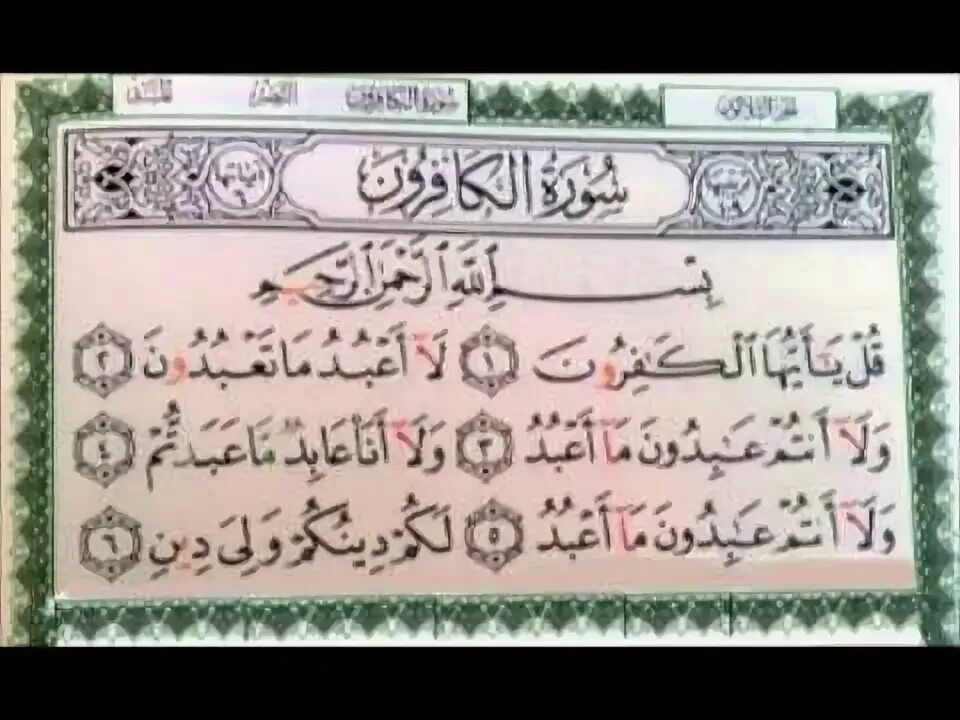 سورة الكافرون الجزء الثلاثون
سُورَةُ الكَافِرُونَ
بِسْمِ ٱللَّهِ ٱلرَّحْمَٰنِ ٱلرَّحِيمِ
قُلْ يَٰٓأَيُّهَا ٱلْكَٰفِرُونَ ١ لَآ أَعْبُدُ مَا تَعْبُدُونَ ٢
وَلَآ أَنتُمْ عَٰبِدُونَ مَآ أَعْبُدُ ٣ وَلَآ أَنَا۠ عَابِدٌ مَّا عَبَدتُّمْ ٤
وَلَآ أَنتُمْ عَٰبِدُونَ مَآ أَعْبُدُ ٥ لَكُمْ دِينُكُمْ وَلِىَ دِينِ ٦